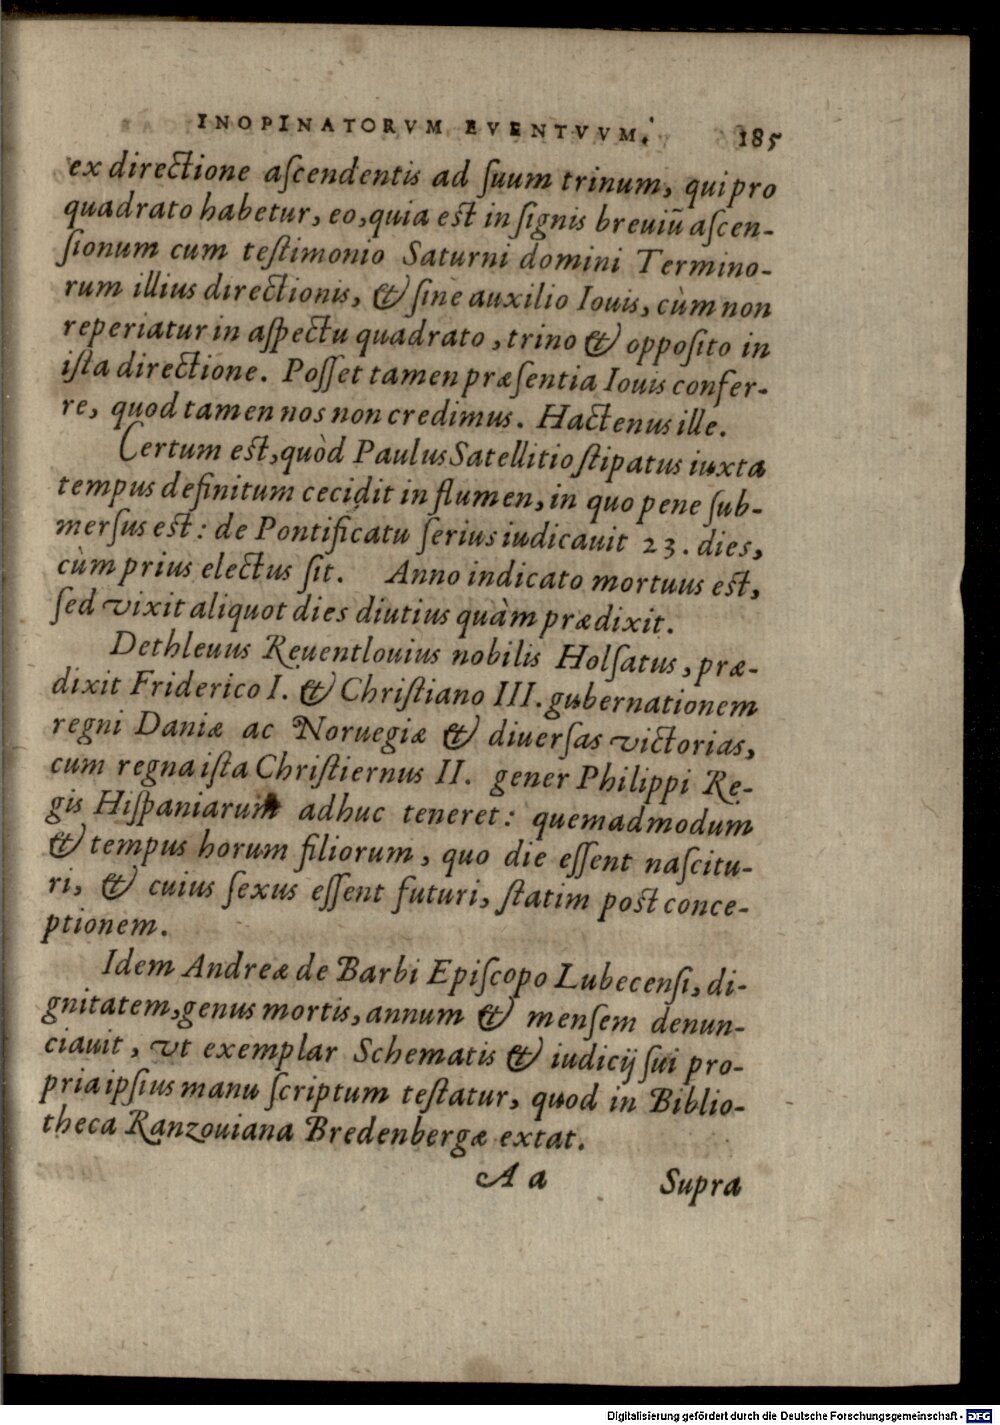 INOPINATORVM EVENTVVM. 185
ex directione ascendentis ad suum trinum, qui pro
quadrato habetur, eo, quia est in signis breuiũ ascen-
sionum cum testimonio Saturni domini Termino-
rum illius directionis, & sine auxilio Iouis, cùm non
reperiatur in aspectu quadrato, trino & opposito in
ista directione. Posset tamen præsentia Iouis confer-
re, quod tamen nos non credimus. Hactenus ille.
Certum est, quòd Paulus Satellitio stipatus iuxta
tempus definitum cecidit in flumen, in quo pene sub-
mersus est: de Pontificatu serius iudicauit 23. dies,
cùm prius electus sit. Anno indicato mortuus est,
sed vixit aliquot dies diutius quàm prædixit.
Dethleuus Reuentlouius nobilis Holsatus, præ-
dixit Friderico I. & Christiano III. gubernationem
regni Daniæ ac Noruegiæ & diuersas victorias,
cum regna ista Christiernus II. gener Philippi Re-
gis Hispaniarum adhuc teneret: quemadmodum
& tempus horum filiorum, quo die essent nascitu-
ri, & cuius sexus essent futuri, statim post conce-
ptionem.
Idem Andreæ de Barbi Episcopo Lubecensi, di-
gnitatem, genus mortis, annum & mensem denun-
ciauit, vt exemplar Schematis & iudicij sui pro-
pria ipsius manu scriptum testatur, quod in Biblio-
theca Ranzouiana Bredenbergæ extat.
A a Supra
Digitalisierung gefördert durch die Deutsche Forschungsgemeinschaft - DFG